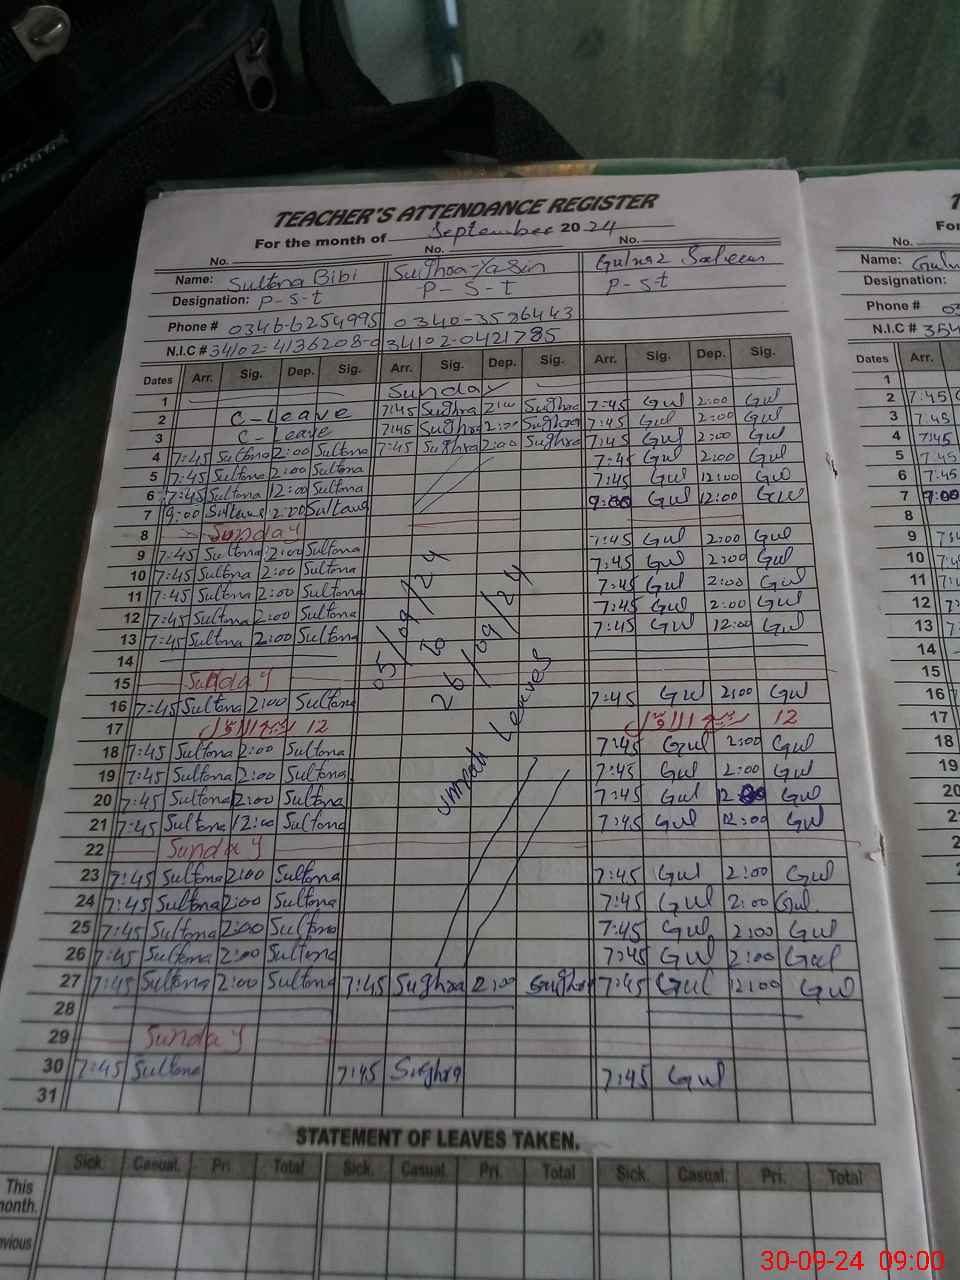 TEACHER'S ATTENDANCE REGISTER
For the month of September 2024
No. No. No.
Name: Sultana Bibi Sughra Yasin Gulnaz Saleem
Designation: P-S-t P-S-T P-S-t
Phone # 0346-6254995 0340-3526443
N.I.C # 34102-4136208-0 34102-0421785
Dates Arr. Sig. Dep. Sig. Arr. Sig. Dep. Sig. Arr. Sig. Dep. Sig.
1 Sunday
2 C-Leave 7:45 Sughra 2:00 Sughra 7:45 Gul 2:00 Gul
3 C-Leave 7:45 Sughra 2:00 Sughra 7:45 Gul 2:00 Gul
4 7:45 Sultana 2:00 Sultana 7:45 Sughra 2:00 Sughra 7:45 Gul 2:00 Gul
5 7:45 Sultana 2:00 Sultana 7:45 Gul 2:00 Gul
6 7:45 Sultana 12:00 Sultana 7:45 Gul 12:00 Gul
7 9:00 Sultana 2:00 Sultana 9:00 Gul 12:00 Gul
8 Sunday
9 7:45 Sultana 2:00 Sultana 7:45 Gul 2:00 Gul
10 7:45 Sultana 2:00 Sultana 7:45 Gul 2:00 Gul
11 7:45 Sultana 2:00 Sultana 7:45 Gul 2:00 Gul
12 7:45 Sultana 2:00 Sultana 7:45 Gul 2:00 Gul
13 7:45 Sultana 2:00 Sultana 7:45 Gul 12:00 Gul
05/09/24
to
26/09/24
Umrah Leaves
14
15 Sunday
16 7:45 Sultana 2:00 Sultana 7:45 Gul 2:00 Gul
17 12 ربیع الاول 12 ربیع الاول
18 7:45 Sultana 2:00 Sultana 7:45 Gul 2:00 Gul
19 7:45 Sultana 2:00 Sultana 7:45 Gul 2:00 Gul
20 7:45 Sultana 2:00 Sultana 7:45 Gul 12:00 Gul
21 7:45 Sultana 12:00 Sultana 7:45 Gul 12:00 Gul
22 Sunday
23 7:45 Sultana 2:00 Sultana 7:45 Gul 2:00 Gul
24 7:45 Sultana 2:00 Sultana 7:45 Gul 2:00 Gul
25 7:45 Sultana 2:00 Sultana 7:45 Gul 2:00 Gul
26 7:45 Sultana 2:00 Sultana 7:45 Gul 2:00 Gul
27 7:45 Sultana 2:00 Sultana 7:45 Sughra 2:00 Sughra 7:45 Gul 12:00 Gul
28
29 Sunday
30 7:45 Sultana 7:45 Sughra 7:45 Gul
31
STATEMENT OF LEAVES TAKEN.
Sick. Casual. Pri. Total Sick. Casual. Pri. Total Sick. Casual. Pri. Total
This
month.
No.
Name:
Designation:
Phone #
N.I.C #
Dates Arr.
1
2 7:45
3 7:45
4 7:45
5 7:45
6 7:45
7 9:00
8
9
10
11
12
13
14
15
16
17
18
19
20
30-09-24 09:00